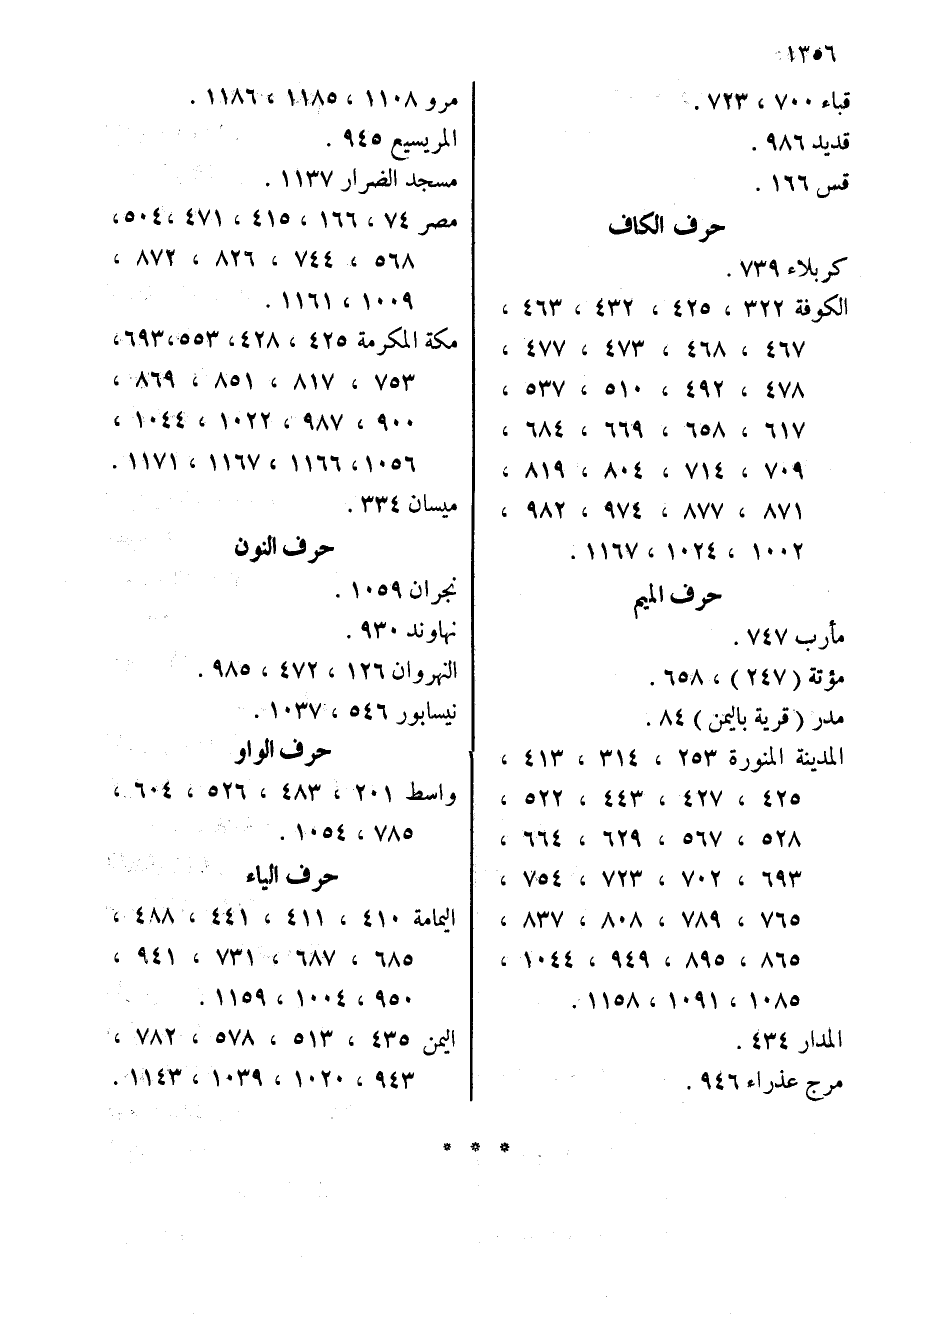 ١٣٥٦
قباء ٧٠٠ ، ٧٢٣ .
قديد ٩٨٦ .
قس ١٦٦ .
حرف الكاف
كربلاء ٧٣٩ .
الكوفة ٣٢٢ ، ٤٢٥ ، ٤٣٢ ، ٤٦٣ ،
٤٦٧ ، ٤٦٨ ، ٤٧٣ ، ٤٧٧ ،
٤٧٨ ، ٤٩٢ ، ٥١٠ ، ٥٣٧ ،
٦١٧ ، ٦٥٨ ، ٦٦٩ ، ٦٨٤ ،
٧٠٩ ، ٧١٤ ، ٨٠٤ ، ٨١٩ ،
٨٧١ ، ٨٧٧ ، ٩٧٤ ، ٩٨٢ ،
١٠٠٢ ، ١٠٢٤ ، ١١٦٧ .
حرف الميم
مأرب ٧٤٧ .
مؤتة (٢٤٧) ، ٦٥٨ .
مدر (قرية باليمن) ٨٤ .
المدينة المنورة ٢٥٣ ، ٣١٤ ، ٤١٣ ،
٤٢٥ ، ٤٢٧ ، ٤٤٣ ، ٥٢٢ ،
٥٢٨ ، ٥٦٧ ، ٦٢٩ ، ٦٦٤ ،
٦٩٣ ، ٧٠٢ ، ٧٢٣ ، ٧٥٤ ،
٧٦٥ ، ٧٨٩ ، ٨٠٨ ، ٨٣٧ ،
٨٦٥ ، ٨٩٥ ، ٩٤٩ ، ١٠٤٤ ،
١٠٨٥ ، ١٠٩١ ، ١١٥٨ .
المدار ٤٣٤ .
مرج عذراء ٩٤٦ .
مرو ١١٠٨ ، ١١٨٥ ، ١١٨٦ .
المريسيع ٩٤٥ .
مسجد الضرار ١١٣٧ .
مصر ٧٤ ، ١٦٦ ، ٤١٥ ، ٤٧١ ، ٥٠٤ ،
٥٦٨ ، ٧٤٤ ، ٨٢٦ ، ٨٧٢ ،
١٠٠٩ ، ١١٦١ .
مكة المكرمة ٤٢٥ ، ٤٢٨ ، ٥٥٣ ، ٦٩٣ ،
٧٥٣ ، ٨١٧ ، ٨٥١ ، ٨٦٩ ،
٩٠٠ ، ٩٨٧ ، ١٠٢٢ ، ١٠٤٤ ،
١٠٥٦ ، ١١٦٦ ، ١١٦٧ ، ١١٧١ .
ميسان ٣٣٤ .
حرف النون
نجران ١٠٥٩ .
نهاوند ٩٣٠ .
النهروان ١٢٦ ، ٤٧٢ ، ٩٨٥ .
نيسابور ٥٤٦ ، ١٠٣٧ .
حرف الواو
واسط ٢٠١ ، ٤٨٣ ، ٥٢٦ ، ٦٠٤ ،
٧٨٥ ، ١٠٥٤ .
حرف الياء
اليمامة ٤١٠ ، ٤١١ ، ٤٤١ ، ٤٨٨ ،
٦٨٥ ، ٦٨٧ ، ٧٣١ ، ٩٤١ ،
٩٥٠ ، ١٠٠٤ ، ١١٥٩ .
اليمن ٤٣٥ ، ٥١٣ ، ٥٧٨ ، ٧٨٢ ،
٩٤٣ ، ١٠٢٠ ، ١٠٣٩ ، ١١٤٣ .
* * *